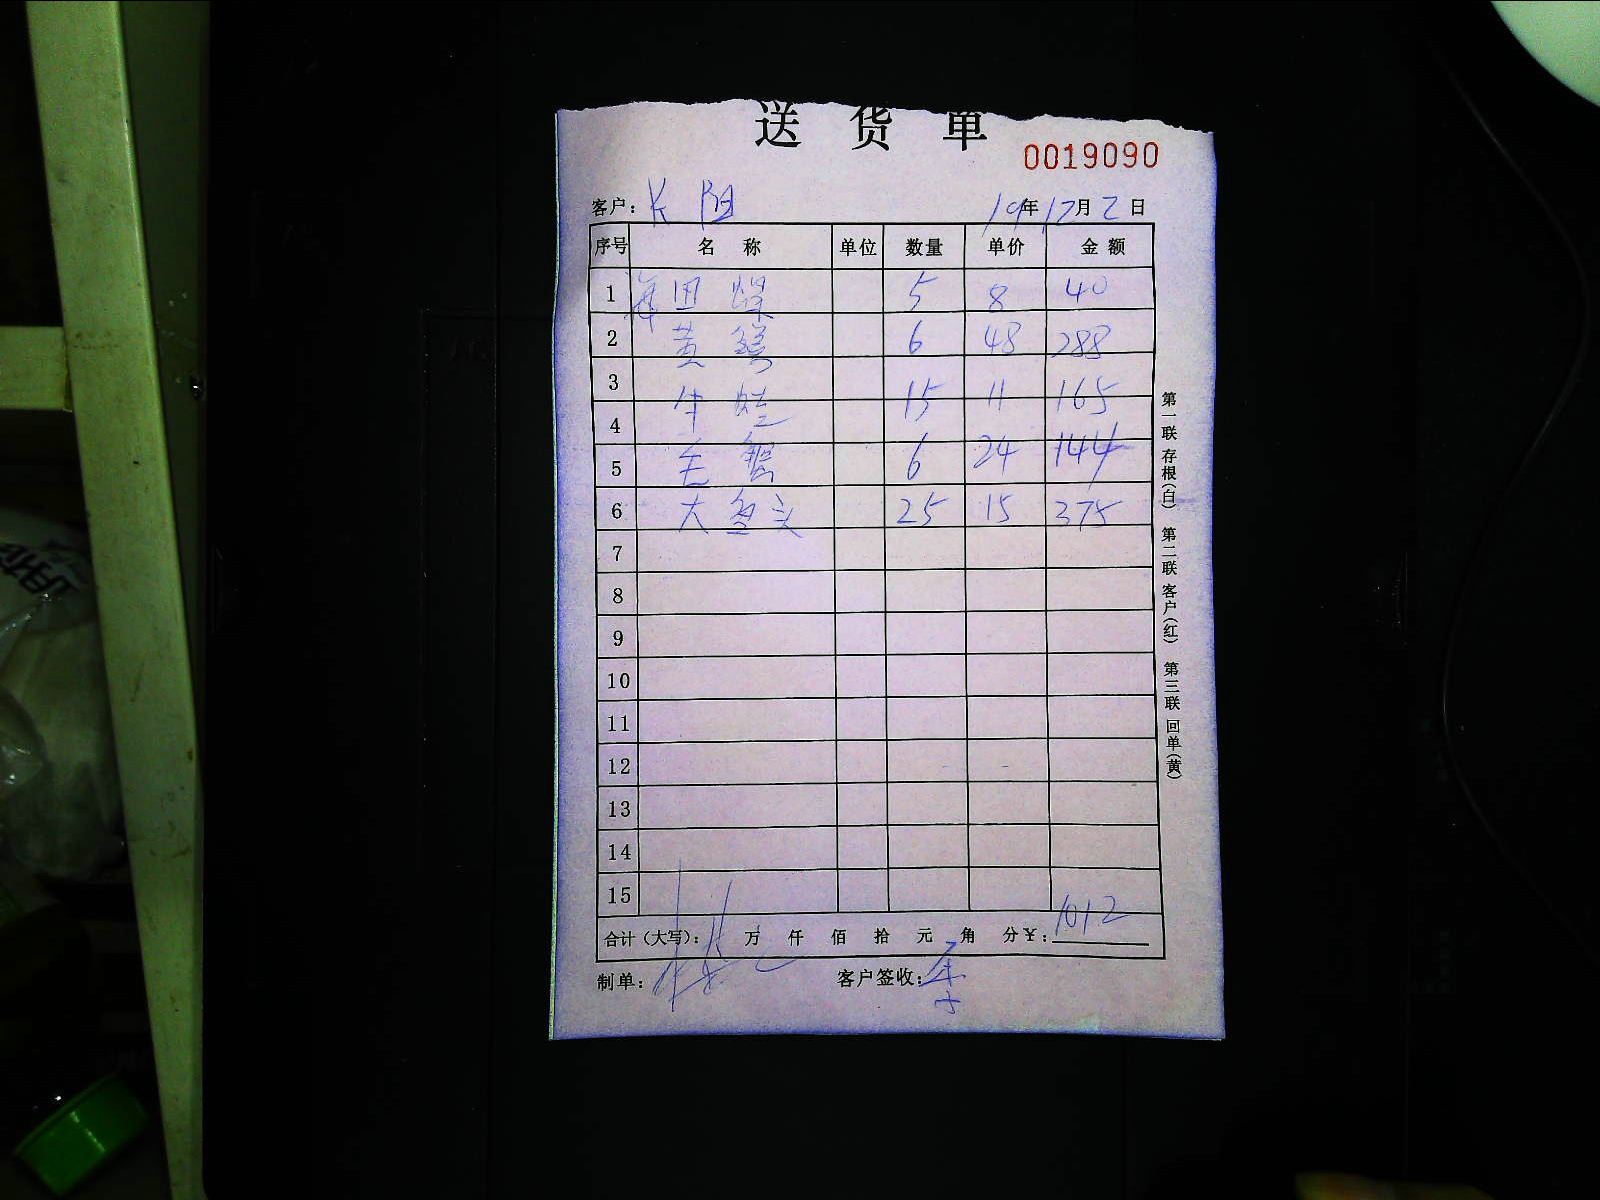 送货单
0019090
客户：长阳 19年12月2日
序号 名称 单位 数量 单价 金额
1 海田螺 5 8 40
2 黄鳝 6 48 288
3 牛蛙 15 11 165
4
5 毛蟹 6 24 144
6 大鱼头 25 15 375
7
8
9
10
11
12
13
14
15
合计（大写）： 万 仟 佰 拾 元 角 分￥：1012
制单： 客户签收：
第一联存根（白） 第二联客户（红） 第三联回单（黄）